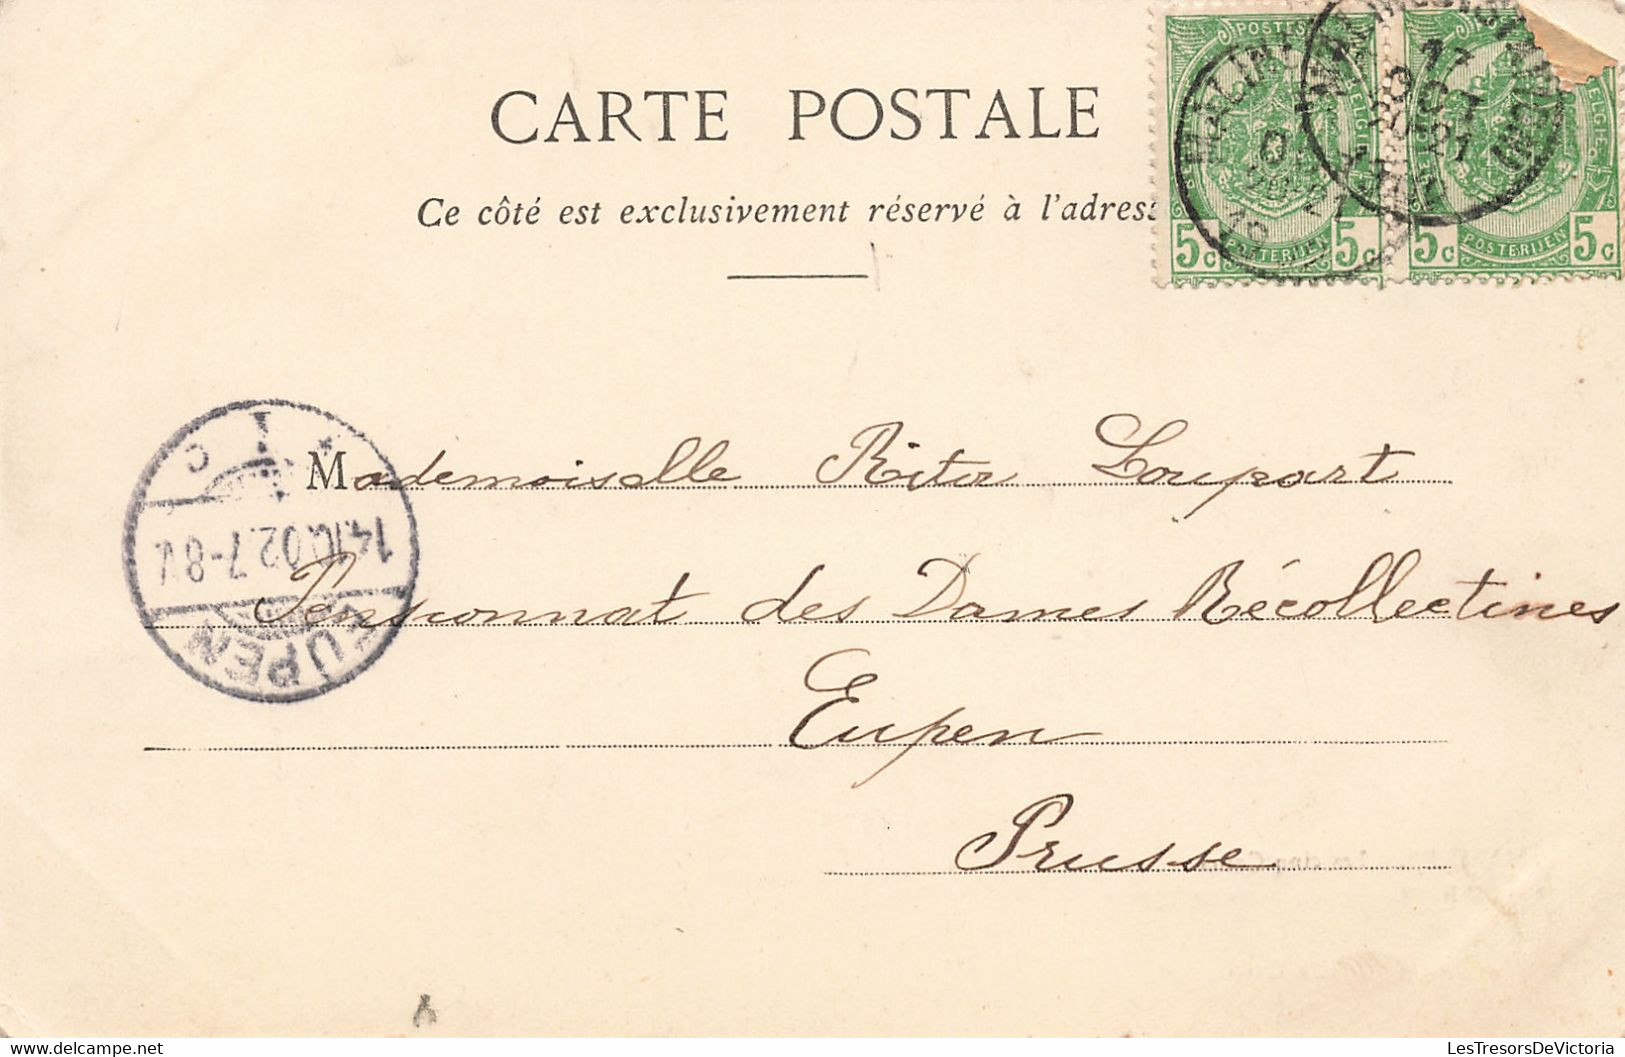 CARTE POSTALE
Ce côté est exclusivement réservé à l'adress
POSTES
BELGIE
5c 5c
POSTERIJEN
5c 5c
POSTERIJEN
MALINES
Mademoiselle Rita Loupart
Pensionnat des Dames Récollectines
Eupen
Prusse
EUPEN
14.10.02.7-8V.
I c
LesTresorsDeVictoria